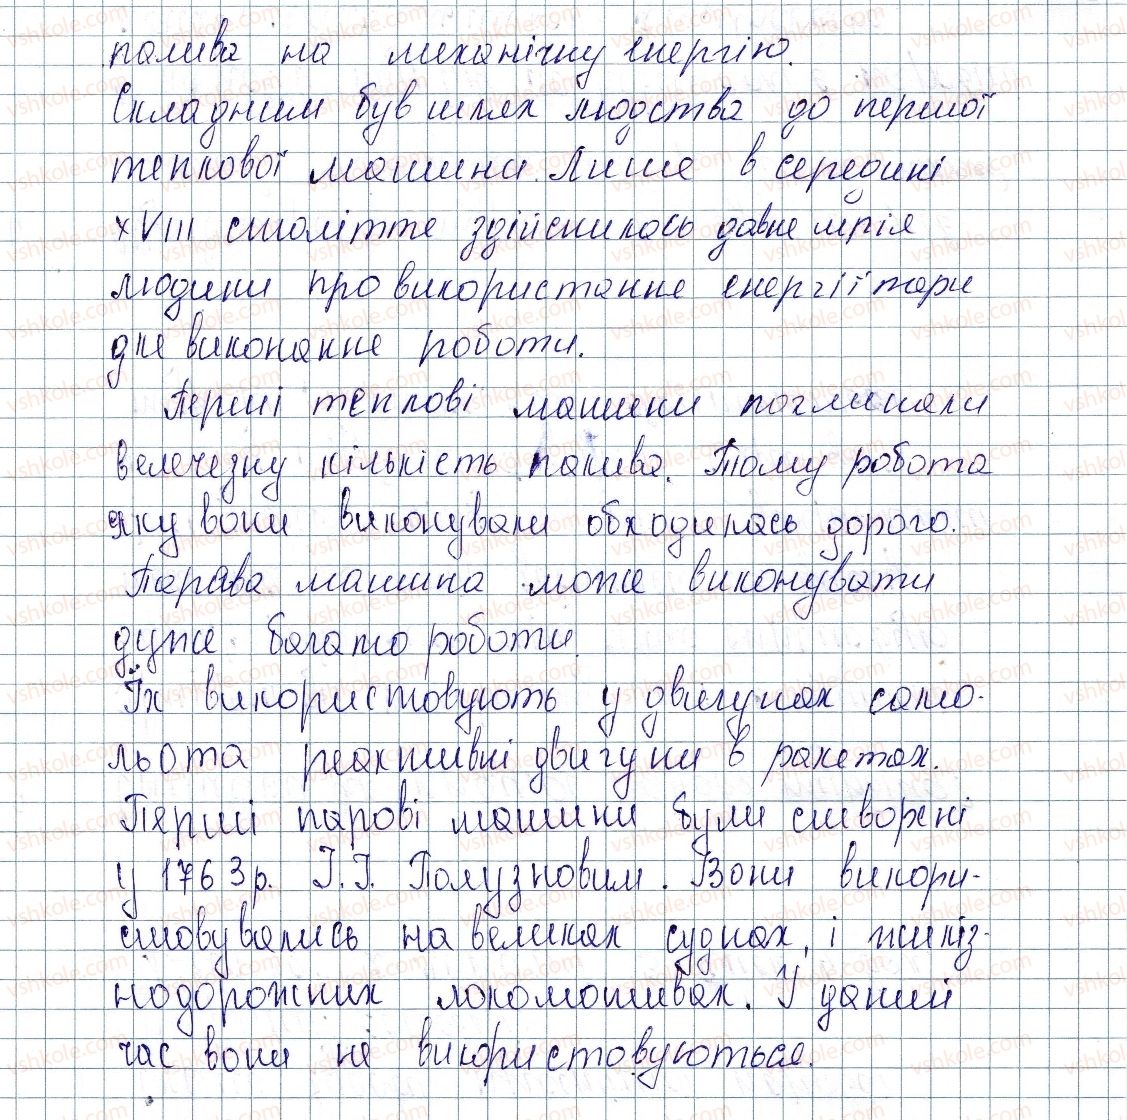 палива на механічну енергію.
Складним був шлях людства до першої
теплової машини. Лише в середині
XVIII століття здійснилось давня мрія
людини про використання енергії пари
для виконання роботи.
Перші теплові машини поглинали
велечезну кількість палива. Тому робота
яку вони виконували обходилась дорого.
Парава машина може виконувати
дуже багато роботи.
Їх використовують у двигунах само-
льота реактивні двигуни в ракетах.
Перші парові машини були створені
у 1763р. І.І. Ползуновим. Вони викори-
стовувались на великах суднах, і жиліз-
нодорожних локомотивах. У даний
час вони не використовуються.